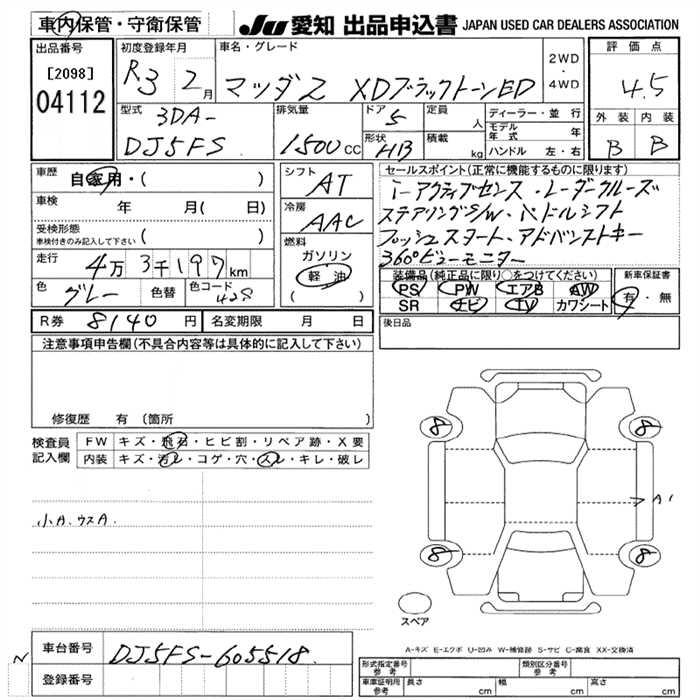 車内保管・守衛保管
JU 愛知 出品申込書 JAPAN USED CAR DEALERS ASSOCIATION
出品番号 初度登録年月 車名・グレード 評価点
[2098] R3 2月 マツダ2 XDブラックトーンED 2WD・4WD 4.5
04112
型式 排気量 ドア 定員 ディーラー・並行 外装 内装
3DA- 5 人 モデル年式 年
DJ5FS 1500cc 形状 HB 積載 kg ハンドル 左・右 B B
車歴 自家用・( ) シフト AT セールスポイント(正常に機能するものに限ります)
車検 年 月( 日) 冷房 AAC
i-アクティブセンス・レーダークルーズ
ステアリングS/W・パドルシフト
プッシュスタート・アドバンストキー
360°ビューモニター
受検形態 ( )
車検付きのみ記入して下さい
走行 4万3千197km
燃料 ガソリン 軽油 ( )
色 グレー 色替 色コード 42S
装備品(純正品に限り○をつけてください) 新車保証書
PS PW エアB AW 有・無
SR ナビ TV カワシート
R券 8140円 名変期限 月 日
後日品
注意事項申告欄(不具合内容等は具体的に記入して下さい)
修復歴 有 (箇所 )
検査員記入欄 FW キズ・飛石・ヒビ割・リペア跡・X要
内装 キズ・汚レ・コゲ・穴・スレ・キレ・破レ
小A.ウスA.
8 8
A1
8 8
スペア
A-キズ E-エクボ U-凹み W-補修跡 S-サビ C-腐食 XX-交換済
N 車台番号 DJ5FS-605518
登録番号
形式指定番号 参考 類別区分番号 参考
車庫証明用 参考 長さ cm 幅 cm 高さ cm